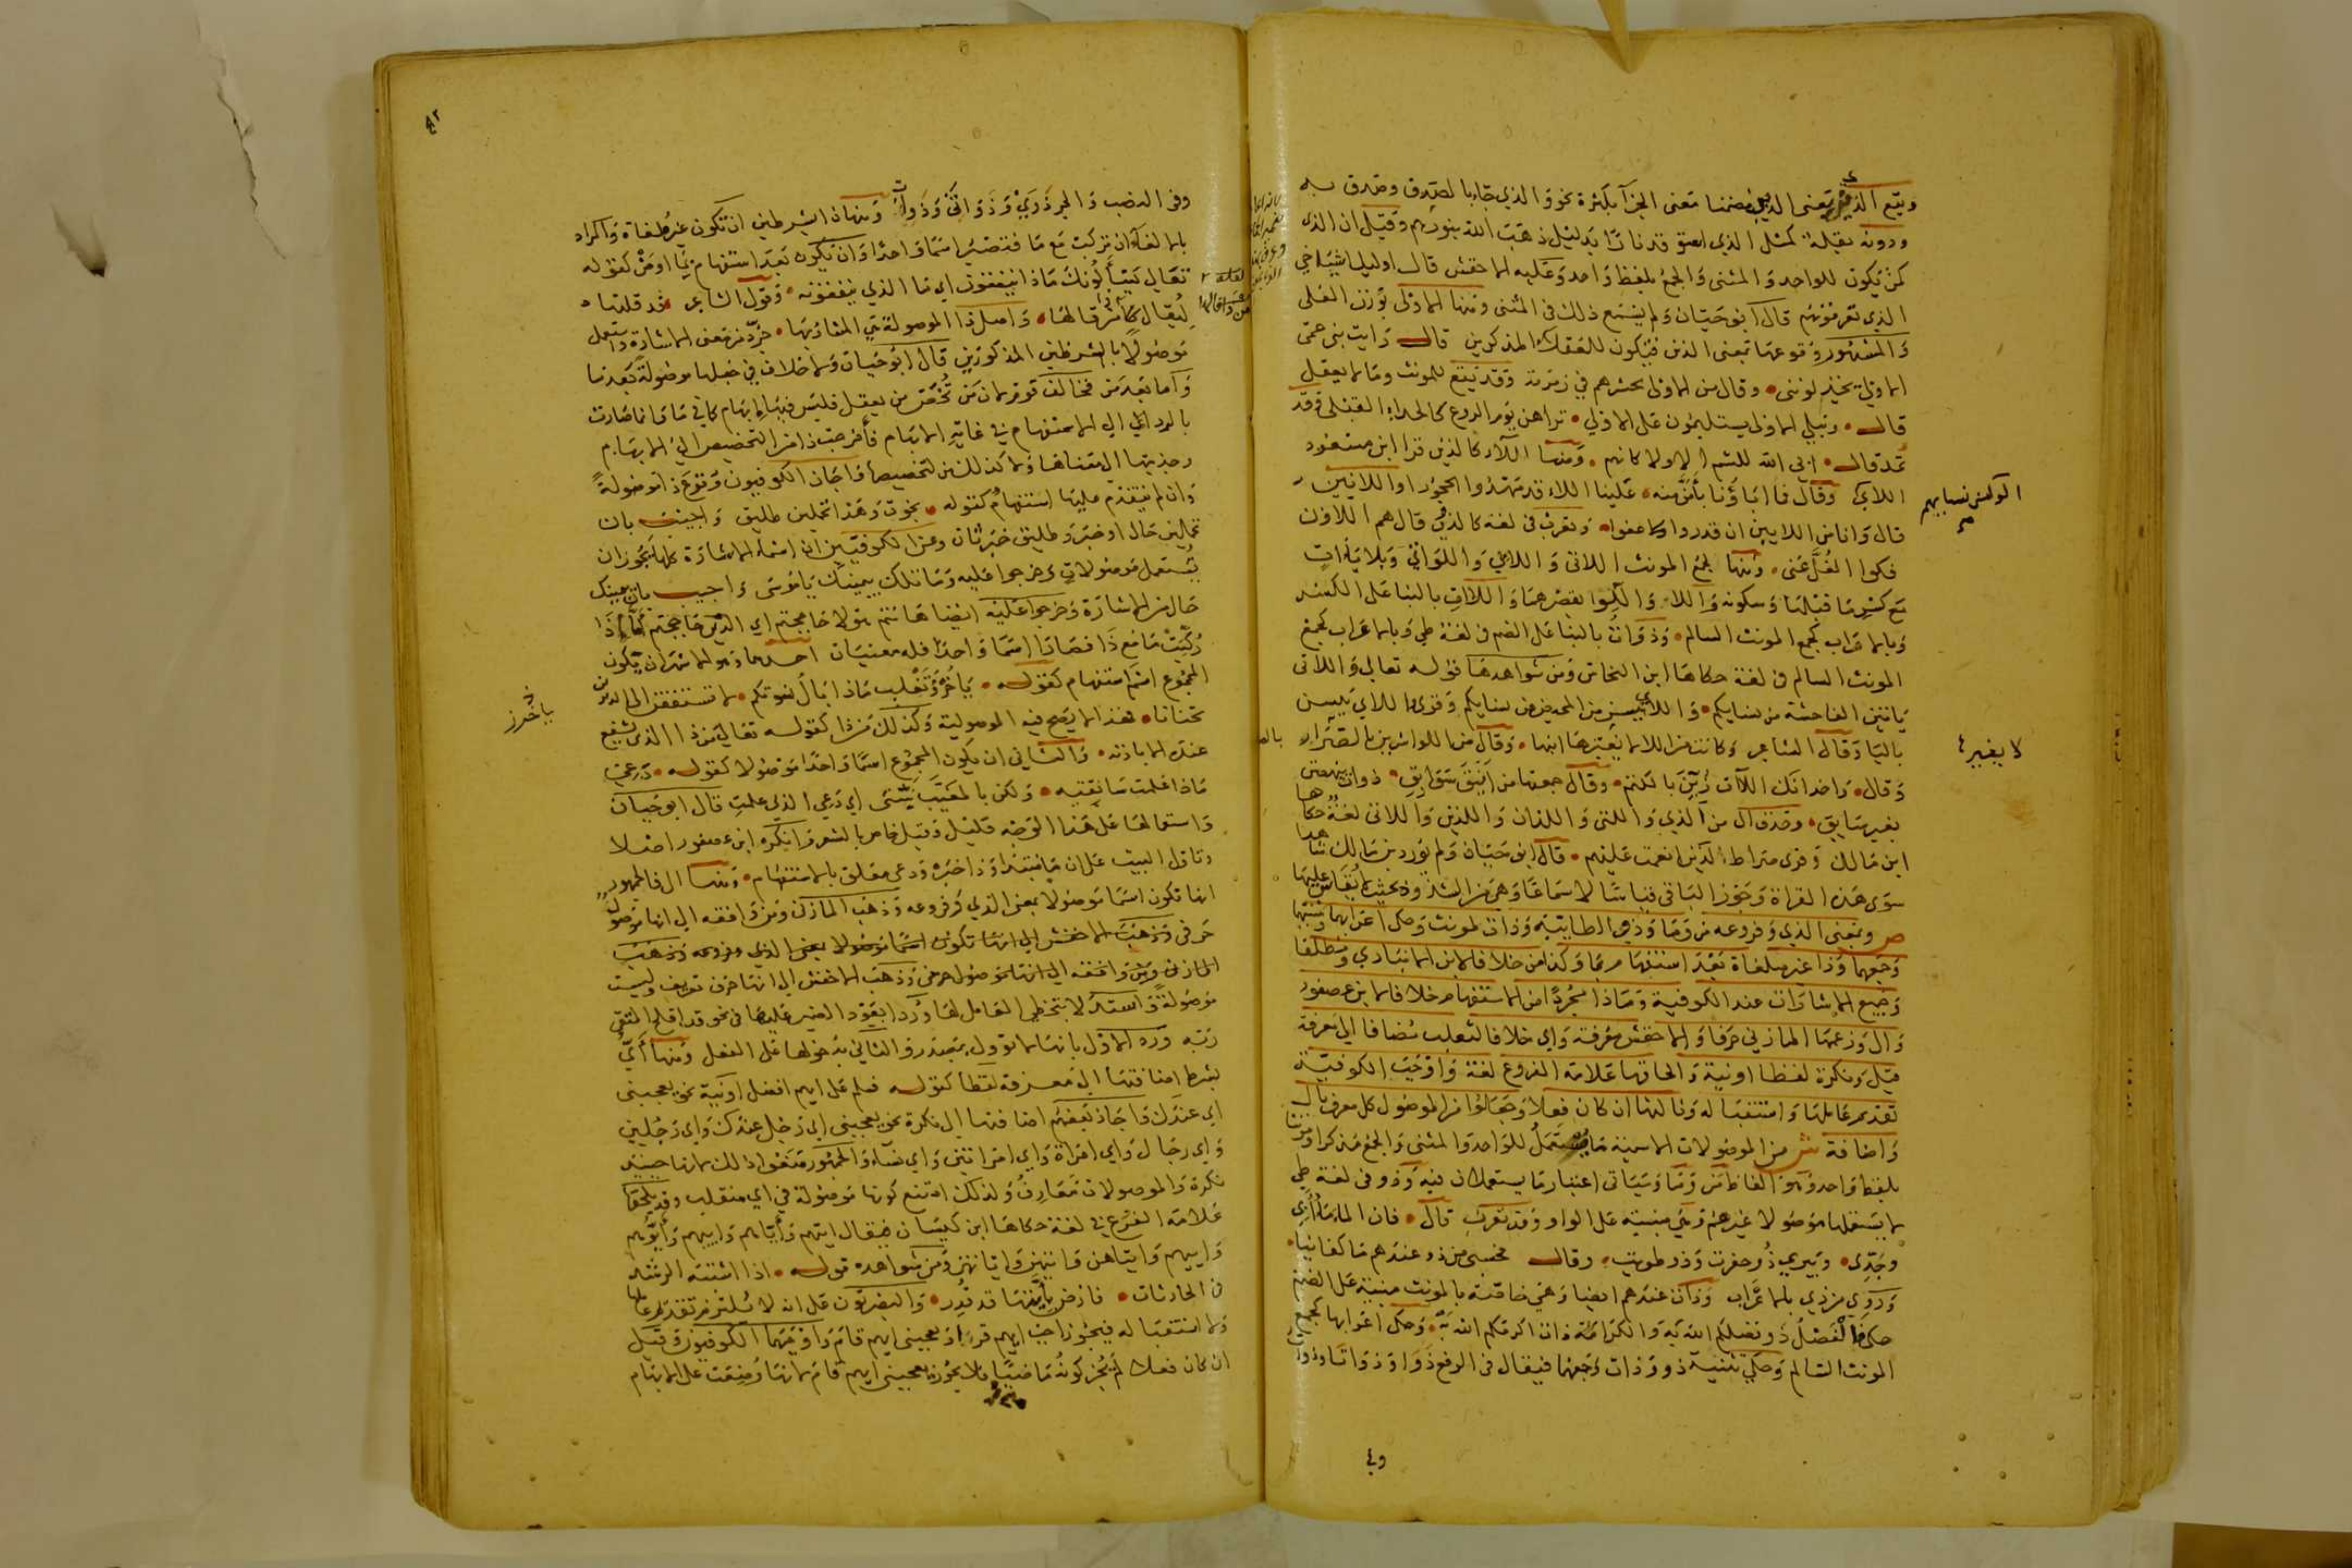 ويقع الذي بمعنى الذين مضمنا معنى الجزآ بكثرة نحو والذي جآء بالصدق وصدق به
ودونه بقلة كمثل الذي استوقد نارا بدليل ذهب الله بنورهم وقيل ان الذي
كمن يكون للواحد والمثنى والجمع بلفظ واحد وعليه الاخفش قال اوليك اشياخي
الذي تعرفونهم قال ابو حيان ولم يسمع ذلك في المثنى ومنها الاولى بوزن العلى
والمشهور وقوعها بمعنى الذين فيكون للعقلاء المذكرين قال رايت بني عمى
الاولى يخذلونني وقال من الاولى يحشرهم في زمرته وقد يقع للمونث وما لا يعقل
قال وتبلي الاولى يستليمون على الاولي تراهن يوم الروع كالحداء القبل وقد
تمد قال ابى الله للشم الالاء كانهم ومنها اللآء كالذين قرا ابن مسعود
اللاي وقال فما اباؤنا بأمن منه علينا اللاء قد مهدوا الحجورا واللايين
قال واناس اللايين ان قدروا عفوا وتعرب في لغة كالذين قال هم اللاؤن
فكوا الغل عنى ومنها لجمع المونث اللاتى واللاءي واللواتي وبلا ياءات
مع كسر ما قبلها وسكونه واللاء واللوا بقصرهما واللات بالبنا على الكسر
وبالاعراب كجمع المونث السالم وذوات بالبنا على الضم في لغة طي وبالاعراب كجمع
المونث السالم في لغة حكاها ابن النحاس ومن شواهدها قوله تعالى واللاتى
ياتين الفاحشة من نسايكم واللاي يئسن من المحيض من نسايكم وقرى واللاي يئسن
باليا وقال الشاعر وكانت من اللا لا يعيرها ابنها وقال من اللواتى بالصرار
وقال واخدانك اللآت زين بالكتم وقال جمعتها من اينق سوابق ذوات ينهضن
بغير سايق وحذف ال من الذي والتى واللذان واللذين واللاتى لغة حكاها
ابن مالك وقرى صراط لذين انعمت عليهم قال ابو حيان ولم يورد ابن مالك شاهدا
سوى هذه القراة وجوز الباقى قياسا لا سماعا وهي من الشذوذ بحيث لا يقاس عليها
ص وبمعنى الذي وفروعه من وما وذو الطاييّة وذات لمونث وحكى اعرابها وتثنيتها
وجمعها وذا غير ملغاة بعد استفهام بما وكذا من خلافا لابن الانباري ومطلقا
وجميع الاشارات عند الكوفية وماذا مجردا من الاستفهام خلافا لابن عصفور
وال وزعمها المازني حرفا والاخفش معرفة واي خلافا لثعلب مضافا الي معرفة
قيل ونكرة لفظا او نية والحاقها علامة الفروع لغة واوجب الكوفية
تقديم عاملها واستقباله وثالثها ان كان فعلا وجعلوا من الموصول كل معرف بال
واضافة ش من الموصولات الاسمية ما يستعمل للواحد والمثنى والجمع مذكرا ومونثا
بلفظ واحد وهو الفاظ من وما وسياتى اعتبار ما يستعملان فيه وذو في لغة طي
لا يستعملها موصولا غيرهم وهي مبنية على الواو وقد تعرب قال فان الماء ماء ابي
وجدى وبيرى ذو حفرت وذو طويت وقال فحسبي من ذو عندهم ما كفانيا
وروي من ذي بالاعراب وذات عندهم ايضا وهي خاصة بالمونث مبنية على الضم
حكى الفضل ذو فضلكم الله به والكرامة ذات اكرمكم الله به وحكى اعرابها كجمع
المونث السالم وحكي تثنية ذو وذات وجمعهما فيقال في الرفع ذوا وذواتا وذووا
الو كنى نسابهم
لا يغيرها
وفي
٤٢
وفي النصب والجر ذوي وذواتى وذوات ومنها ذا بشرطين ان تكون غير ملغاة والمراد
بالالغآء ان تركب مع ما فتصير اسما واحدا وان تكون بعد استفهام بما او من كقوله
تعالى يسألونك ماذا ينفقون اي ما الذي ينفقونه وقول الشاعر قد قلتها
ليقال من ذا قالها واصل ذا الموصولة هي المشار بها جرد من معنى الاشارة واستعمل
موصولا بالشرطين المذكورين قال ابو حيان ولا خلاف في جعلها موصولة بعد ما
واما بعد من فخالف قوم لان من تخص من يعقل فليس فيها ابهام كما في ما وانما صارت
بالرد الي الى الاستفهام في غاية الابهام فأخرجت ذا من التخصيص الي الابهام
وجذبتها الى معناها ولا كذلك من لتخصيصها واجاز الكوفيون وقوع ذا موصولة
وان لم يتقدم عليها استفهام كقوله نجوت وهذا تحملين طليق واجيب بان
تحملين حال او خبر وطليق خبر ثان وعن الكوفيين ان اسماء الاشارة كلها يجوز ان
تستعمل موصولات وخرجوا عليه وما تلك بيمينك يا موسى واجيب بان بيمينك
حال من الاشارة وخرجوا عليه ايضا ها انتم هولا حاججتم اي الذين حاججتم اما اذا
ركبت ما مع ذا فصارا اسما واحدا فله معنيان احدهما وهو الاشهر ان يكون
المجموع اسم استفهام كقوله يا خزر تغلب ماذا بال نسوتكم لا تستفقن الى الديرين
تحنانا فهذا لا يصح فيه الموصولية وكذلك من ذا كقوله تعالى من ذا الذي يشفع
عنده الا باذنه والثانى ان يكون المجموع اسما واحدا موصولا كقوله دعي
ماذا علمت ساتقيه ولكن بالمغيب نبئنى اي دعي الذي علمت قال ابو حيان
واستعمالها على هذا الوجه قليل وقيل خاص بالشعر وانكره ابن عصفور اصلا
وتاول البيت على ان ما مبتدا وذا خبره ودعى معلق بالاستفهام ومنها ال فالجمهور
انها تكون اسما موصولا بمعنى الذي وفروعه وذهب المازني ومن وافقه الى انها موصول
حرفى وذهب الاخفش الي انها تكون اسما موصولا بمعنى الذي وفروعه وذهب
المازني ومن وافقه الي انها موصول حرفي وذهب الاخفش الي انها حرف تعريف وليست
موصولة واستدل بتخطي العامل لها ورد بعود الضمير عليها في نحو قد افلح المتقى
ربه ورد الاول بانها لا تؤول بمصدر والثاني بدخولها على الفعل ومنها أي
بشرط اضافتها الى معرفة لفظا كقوله فسلم على ايهم افضل او نية نحو يعجبنى
اي عندك واجاز بعضهم اضافتها الى نكرة نحو يعجبني اي رجل عندك واي رجلين
واي رجال واي امراة واي امراتين واي نساء والجمهور منعوا ذلك لانها حينيذ
نكرة والموصولات معارف ولذلك امتنع كونها موصولة في اي منقلب وقد يلحقها
علامة الفرع في لغة حكاها ابن كيسان فيقال ايتهم وأياهم وأييهم وأيوهم
وأييهم وايتاهن وايتيهن واياتهن ومن شواهده قوله اذا اشتبه الرشد
في الحادثات فارض بأيتها قد قدر والبصريون على انه لا يلزم تقدم عاملها
ولا استقباله فيجوز احب ايهم قرا ويعجبنى ايهم قام واوجبهما الكوفيون وقيل
ان كان فعلا لم يجز كونه ماضيا فلا يجوز يعجبنى ايهم قام لانها وضعت على الابهام
يا خزر